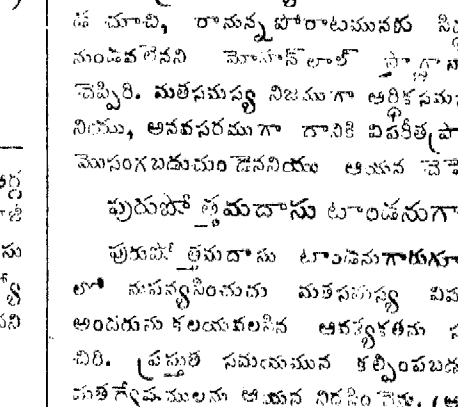 డ చూచి, రానున్న పోరాటమునకు సిద్ధ
నుండవలెనని మోహన్‌లాల్
చెప్పిరి. మతసమస్య నిజముగా ఆర్థికసమ
నియు, అనవసరముగా దానికి విపరీత ప్రా
మొసంగబడుచుండెననియు ఆయన చె
పురుషోత్తమదాసు టాండనుగా
పురుషోత్తమదాసు టాండనుగారుగూ
లో నుపన్యసించుచు మతసమస్య విష
అందరును కలయవలసిన ఆవశ్యకతను
చిరి. ప్రస్తుత సమయమున కల్పింపబడ
మతద్వేషములను ఆయన నిరసించెను.
సు